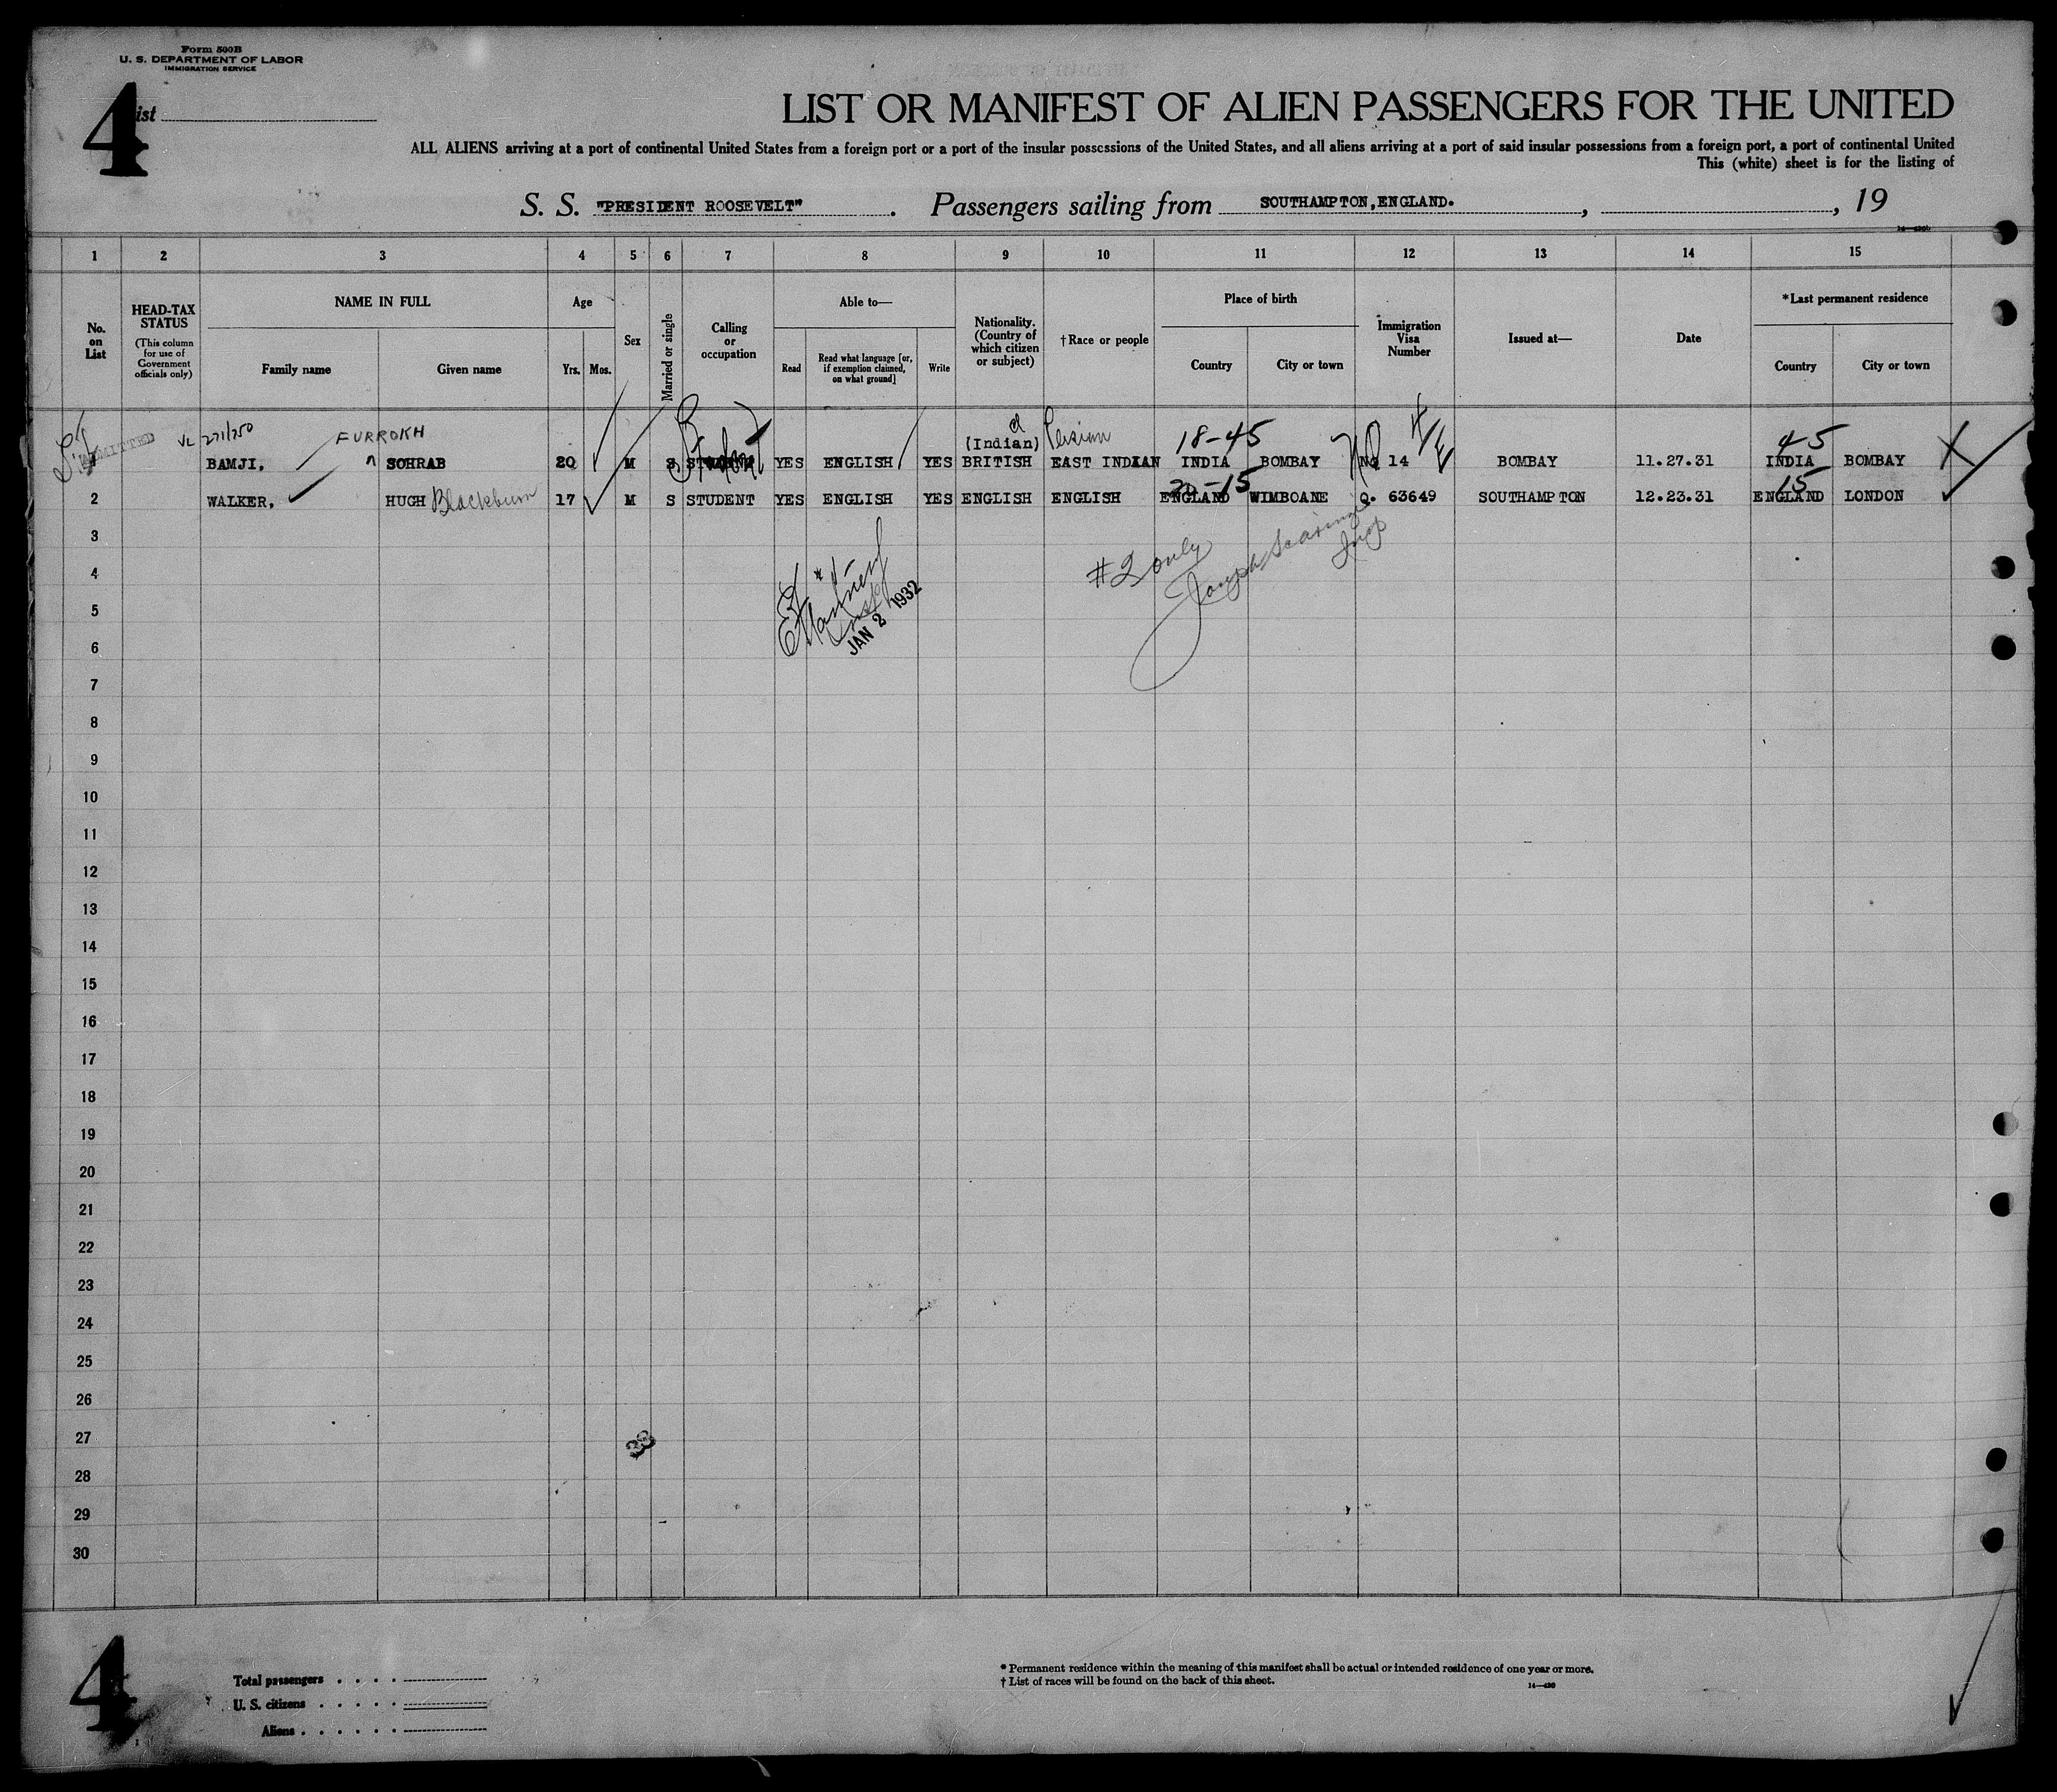 Form 500B
U. S. DEPARTMENT OF LABOR
IMMIGRATION SERVICE
4
ist
LIST OR MANIFEST OF ALIEN PASSENGERS FOR THE UNITED
ALL ALIENS arriving at a port of continental United States from a foreign port or a port of the insular possessions of the United States, and all aliens arriving at a port of said insular possessions from a foreign port, a port of continental United
This (white) sheet is for the listing of
S. S. "PRESIDENT ROOSEVELT". Passengers sailing from SOUTHAMPTON, ENGLAND. , , 19
1 2 3 4 5 6 7 8 9 10 11 12 13 14 15
No. on List
HEAD-TAX STATUS
(This column for use of Government officials only)
NAME IN FULL
Family name Given name
Age
Yrs. Mos.
Sex
Married or single
Calling or occupation
Able to—
Read
Read what language [or, if exemption claimed, on what ground]
Write
Nationality. (Country of which citizen or subject)
†Race or people
Place of birth
Country City or town
Immigration Visa Number
Issued at—
Date
*Last permanent residence
Country City or town
ADMITTED VL 271/750 FURROKH (Indian) Persian 18-45 45
BAMJI, SOHRAB 20 M S STUDENT Student YES ENGLISH YES BRITISH EAST INDIAN INDIA BOMBAY NQ 14 BOMBAY 11.27.31 INDIA BOMBAY
20-15 15
2 WALKER, HUGH Blackburn 17 M S STUDENT YES ENGLISH YES ENGLISH ENGLISH ENGLAND WIMBOANE Q. 63649 SOUTHAMPTON 12.23.31 ENGLAND LONDON
3
4
#2 only
Joseph
5
JAN 2 1932
6
7
8
9
10
11
12
13
14
15
16
17
18
19
20
21
22
23
24
25
26
27
33
28
29
30
4
Total passengers
U. S. citizens
Aliens
* Permanent residence within the meaning of this manifest shall be actual or intended residence of one year or more.
† List of races will be found on the back of this sheet.
14—430